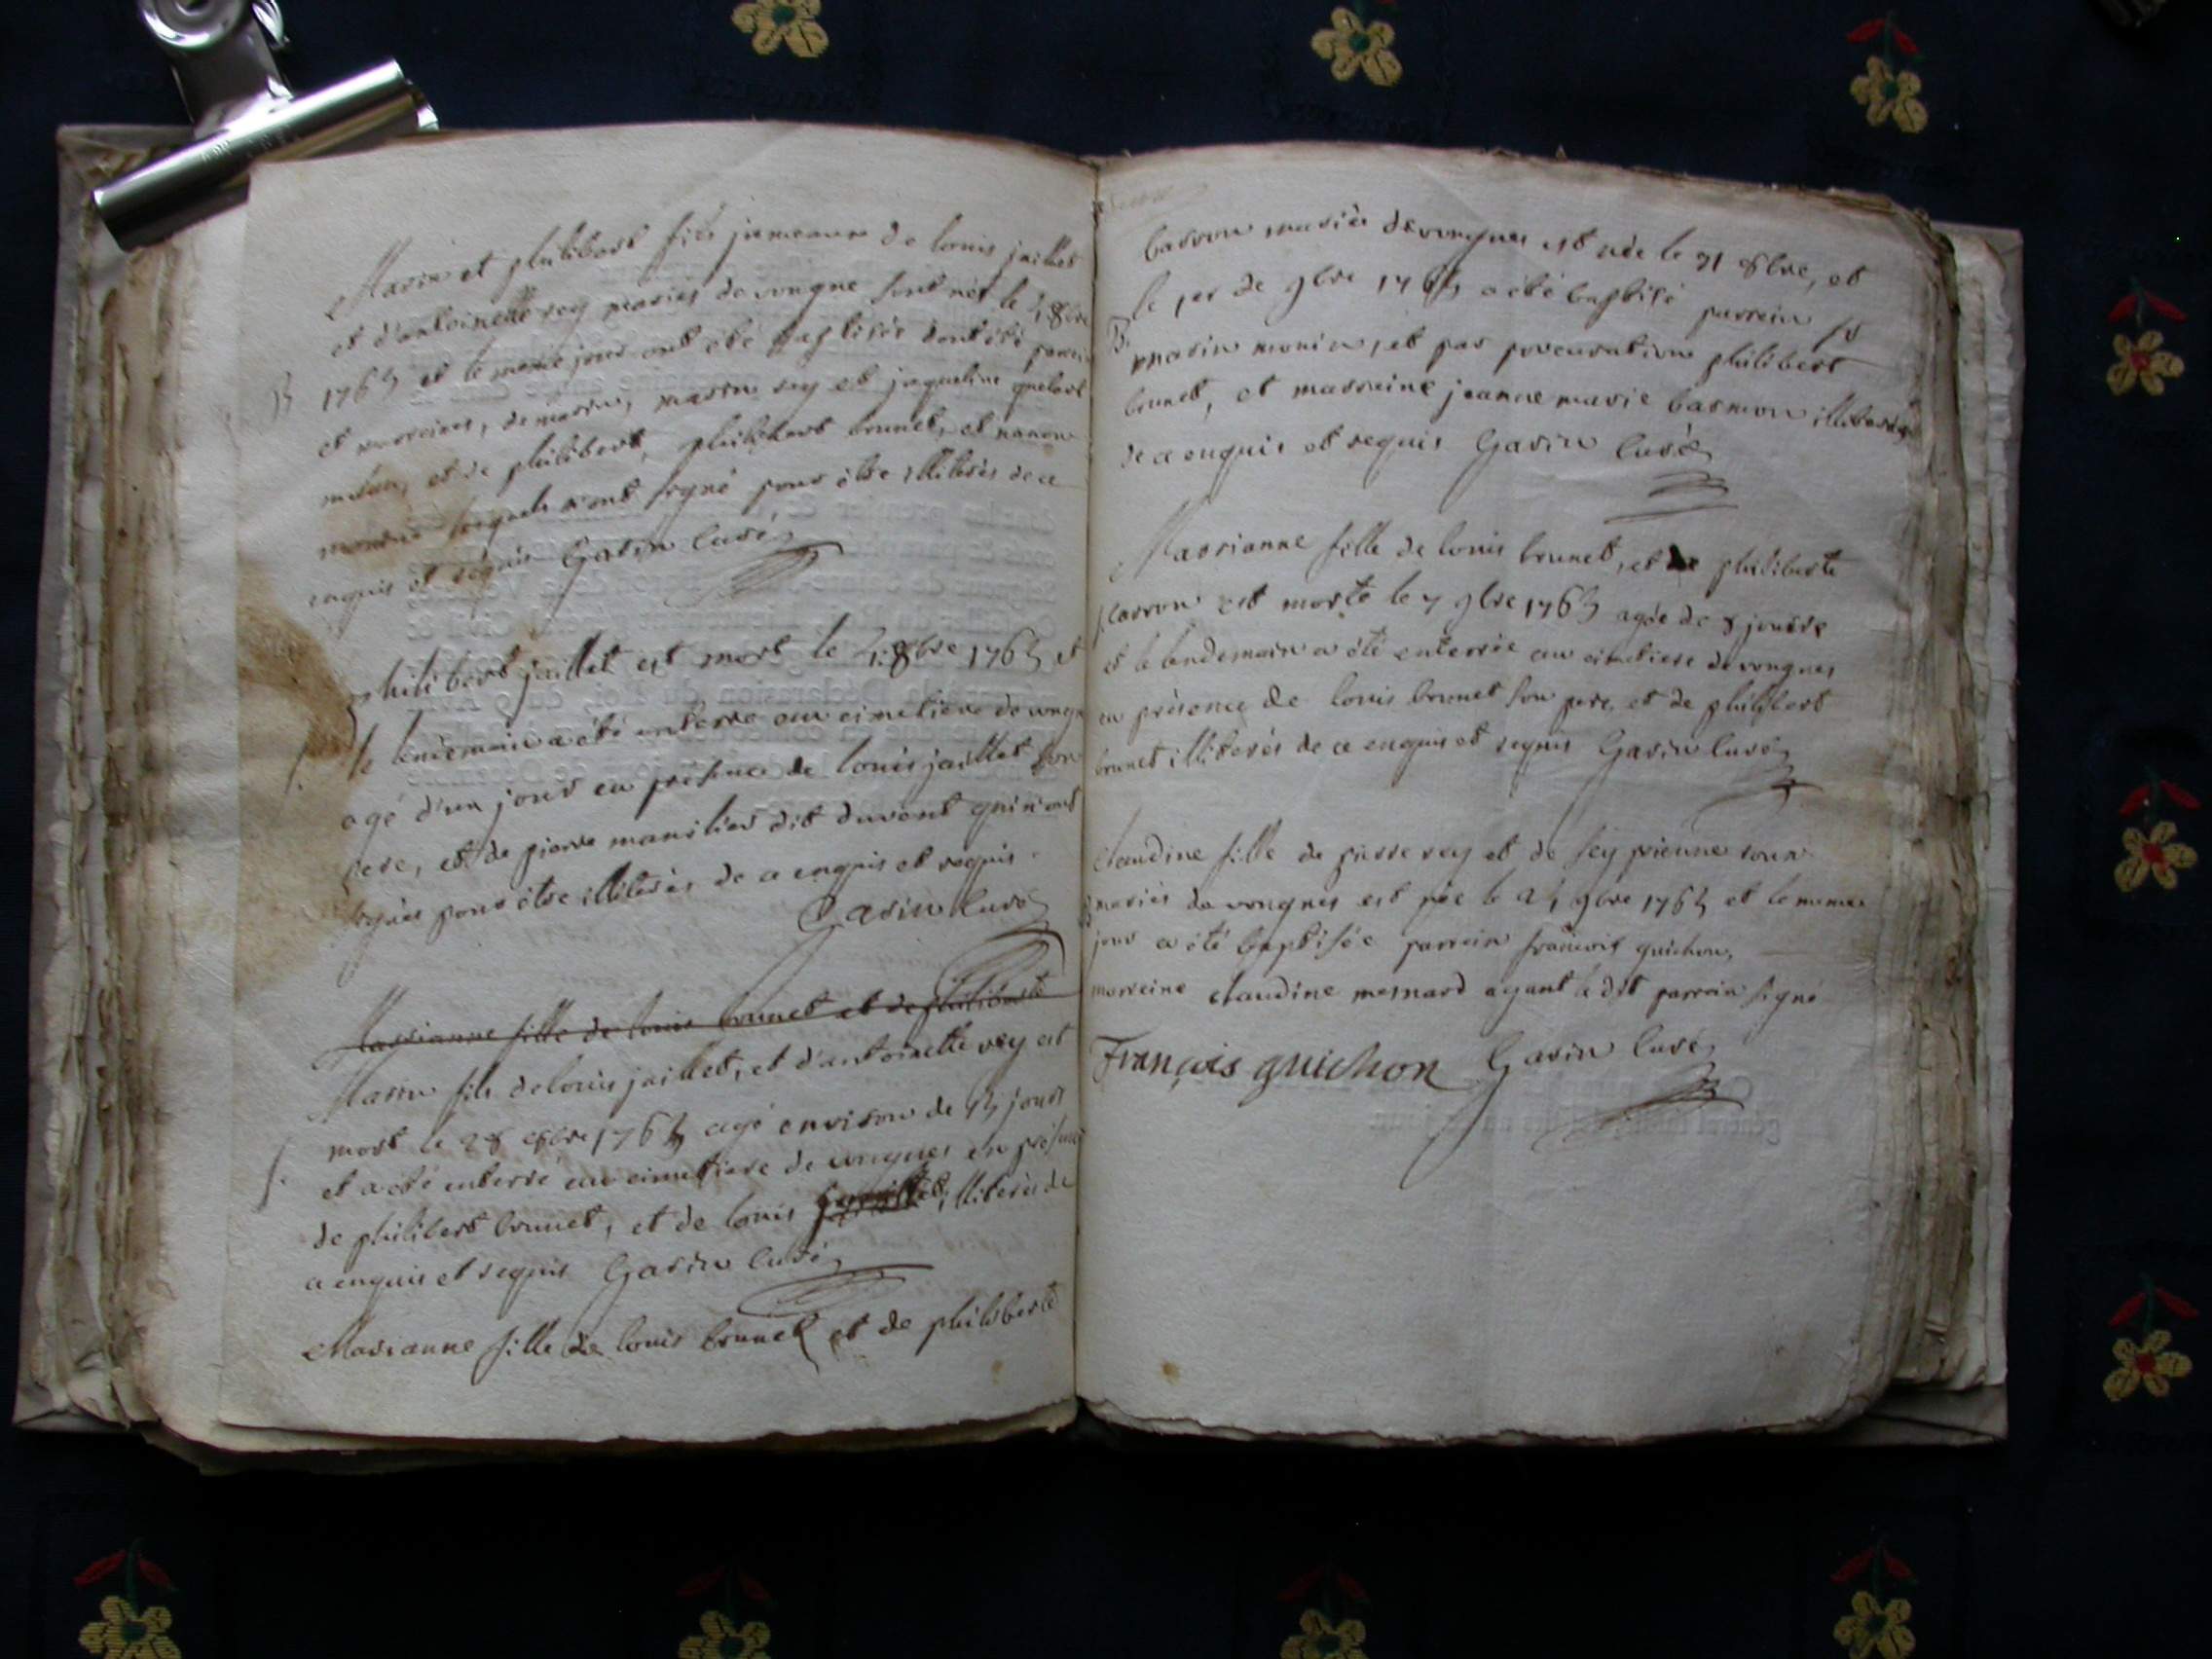 Marin et philibert fils jumeaux de louis jaillet
et d'antoinette rey mariés de vongne sont nés le 4 8bre
B 1764 et le meme jour ont été baptisés dont été parrein
et marreines, de marin, marin rey et jaqueline
et de philibert, philibert brunet, et
lesquels n'ont signé pour être illiterés de ce
enquis et requis Gavin Curé
philibert jaillet est mort le 4 8bre 1764 et
le lendemain a été enterré au cimetiere de vongne
agé d'un jour en presence de louis jaillet son
pere, et de pierre dit duvent qui n'ont
signés pour être illiterés de ce enquis et requis
Gavin Curé
Marianne fille de louis brunet et de philiberte
Marin fils de louis jaillet, et d'antoinette rey est
mort le 28 8bre 1764 agé environ de jours
et a été enterré au cimetiere de vongnes en présence
de philibert brunet, et de louis jaillet, illiterés de
ce enquis et requis Gavin Curé
Marianne fille de louis brunet et de philiberte
carron mariés de vongnes est née le 31 8bre, et
le per de 9bre 1764 a été baptisé parrein
B marin monin, et par procuration philibert
brunet, et marreine jeanne marie illiterés
de ce enquis et requis Gavin Curé
Marianne fille de louis brunet, et de philiberte
carron est morte le 7 9bre 1764 agée de 8 jours
et le lendemain a été enterrée au cimetiere de vongnes
en présence de louis brunet son pere, et de philibert
brunet illiterés de ce enquis et requis Gavin Curé
Claudine fille de pierre rey et de
mariés de vongnes est née le 9bre 1764 et le meme
jour a été baptisée parrein françois guichon,
marreine claudine mesnard ayant le dit parrein signé
François guichon Gavin Curé